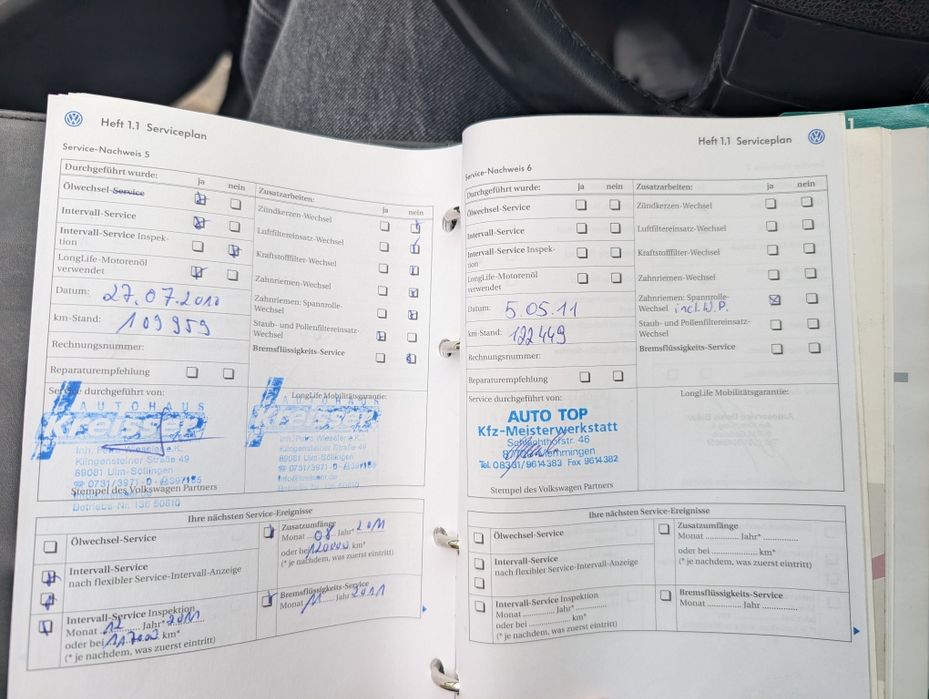 Heft 1.1 Serviceplan
Service-Nachweis 5
Durchgeführt wurde:
ja nein
Ölwechsel-Service
Intervall-Service
Intervall-Service Inspek-
tion
LongLife-Motorenöl
verwendet
Datum: 27.07.2010
km-Stand: 109959
Rechnungsnummer:
Reparaturempfehlung
Zusatzarbeiten:
ja nein
Zündkerzen-Wechsel
Luftfiltereinsatz-Wechsel
Kraftstofffilter-Wechsel
Zahnriemen-Wechsel
Zahnriemen: Spannrolle-
Wechsel
Staub- und Pollenfiltereinsatz-
Wechsel
Bremsflüssigkeits-Service
Service durchgeführt von:
AUTOHAUS
Kreisser
Inh. Petra Wieseler e.K.
Klingensteiner Straße 49
89081 Ulm-Söflingen
Stempel des Volkswagen Partners
LongLife Mobilitätsgarantie:
AUTOHAUS
Kreisser
Inh. Petra Wieseler e.K.
Klingensteiner Straße 49
89081 Ulm-Söflingen
Ihre nächsten Service-Ereignisse
Ölwechsel-Service
Intervall-Service
nach flexibler Service-Intervall-Anzeige
Intervall-Service Inspektion
Monat 12 Jahr* 2011
oder bei km*
(* je nachdem, was zuerst eintritt)
Zusatzumfänge
Monat 08 Jahr* 2011
oder bei 120000 km*
(* je nachdem, was zuerst eintritt)
Bremsflüssigkeits-Service
Monat 11 Jahr 2011
Heft 1.1 Serviceplan
1
Service-Nachweis 6
Durchgeführt wurde:
ja nein
Ölwechsel-Service
Intervall-Service
Intervall-Service Inspek-
tion
LongLife-Motorenöl
verwendet
Datum: 5.05.11
km-Stand: 122449
Rechnungsnummer:
Reparaturempfehlung
Zusatzarbeiten:
ja nein
Zündkerzen-Wechsel
Luftfiltereinsatz-Wechsel
Kraftstofffilter-Wechsel
Zahnriemen-Wechsel
Zahnriemen: Spannrolle-
Wechsel incl. W.P.
Staub- und Pollenfiltereinsatz-
Wechsel
Bremsflüssigkeits-Service
Service durchgeführt von:
AUTO TOP
Kfz-Meisterwerkstatt
Schlachthofstr. 46
Memmingen
Tel. 08331/9614383 Fax 9614382
Stempel des Volkswagen Partners
LongLife Mobilitätsgarantie:
Ihre nächsten Service-Ereignisse
Ölwechsel-Service
Intervall-Service
nach flexibler Service-Intervall-Anzeige
Intervall-Service Inspektion
Monat ............ Jahr* ............
oder bei ............ km*
(* je nachdem, was zuerst eintritt)
Zusatzumfänge
Monat ............ Jahr* ............
oder bei ............ km*
(* je nachdem, was zuerst eintritt)
Bremsflüssigkeits-Service
Monat ............ Jahr ............